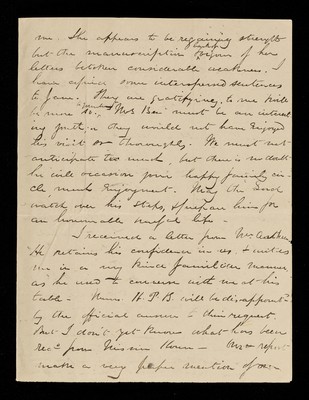 me. She appears to be regaining strength
but the manuscription of her
letters betoken considerable weakness. I
have copied some interspersed sentences
to Jean. They are gratifying to me & will
be more so. Mr B must be an interest
ing youth, or they would not have enjoyed
his visit so thoroughly. We must not
anticipate too much, but there is no doubt
he will occasion your happy family cir-
cle much enjoyment. May the Lord
watch over his steps, & prepare him for
an honorable useful life -
I received a letter from Mr
He retains his confidence in us & writes
me in a very kind familiar manner
as he used to converse with me at his
table - Mrs. H. P. B. will be disappointed
by the official answer to their request,
but I don't yet know what has been
recd from Mission House -
make a very proper mention of